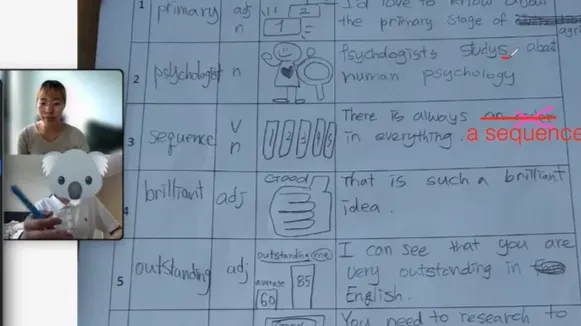 1 primary adj n 1 I'd love to know about
the primary stage of
2 psychologist n Psychologists studys about
human psychology
3 sequence v n 1 2 3 4 5 There is always
in everything. a sequence
4 brilliant adj Good That is such a brilliant
idea.
5 outstanding adj outstanding me average 60 85 I can see that you are
very outstanding in
English.
You need to research to